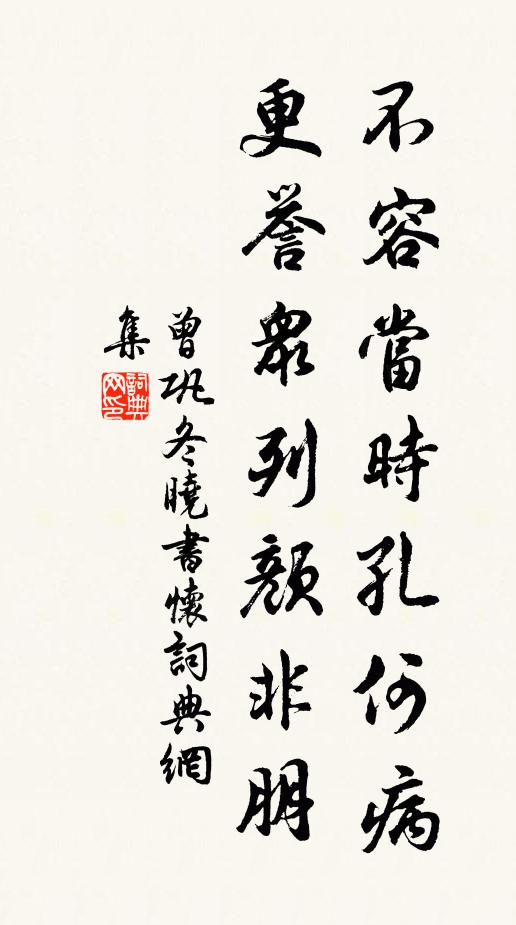 不容當時孔何病
更譽眾列顏非朋
曾鞏冬曉書懷詞典網
集
詞典
网印